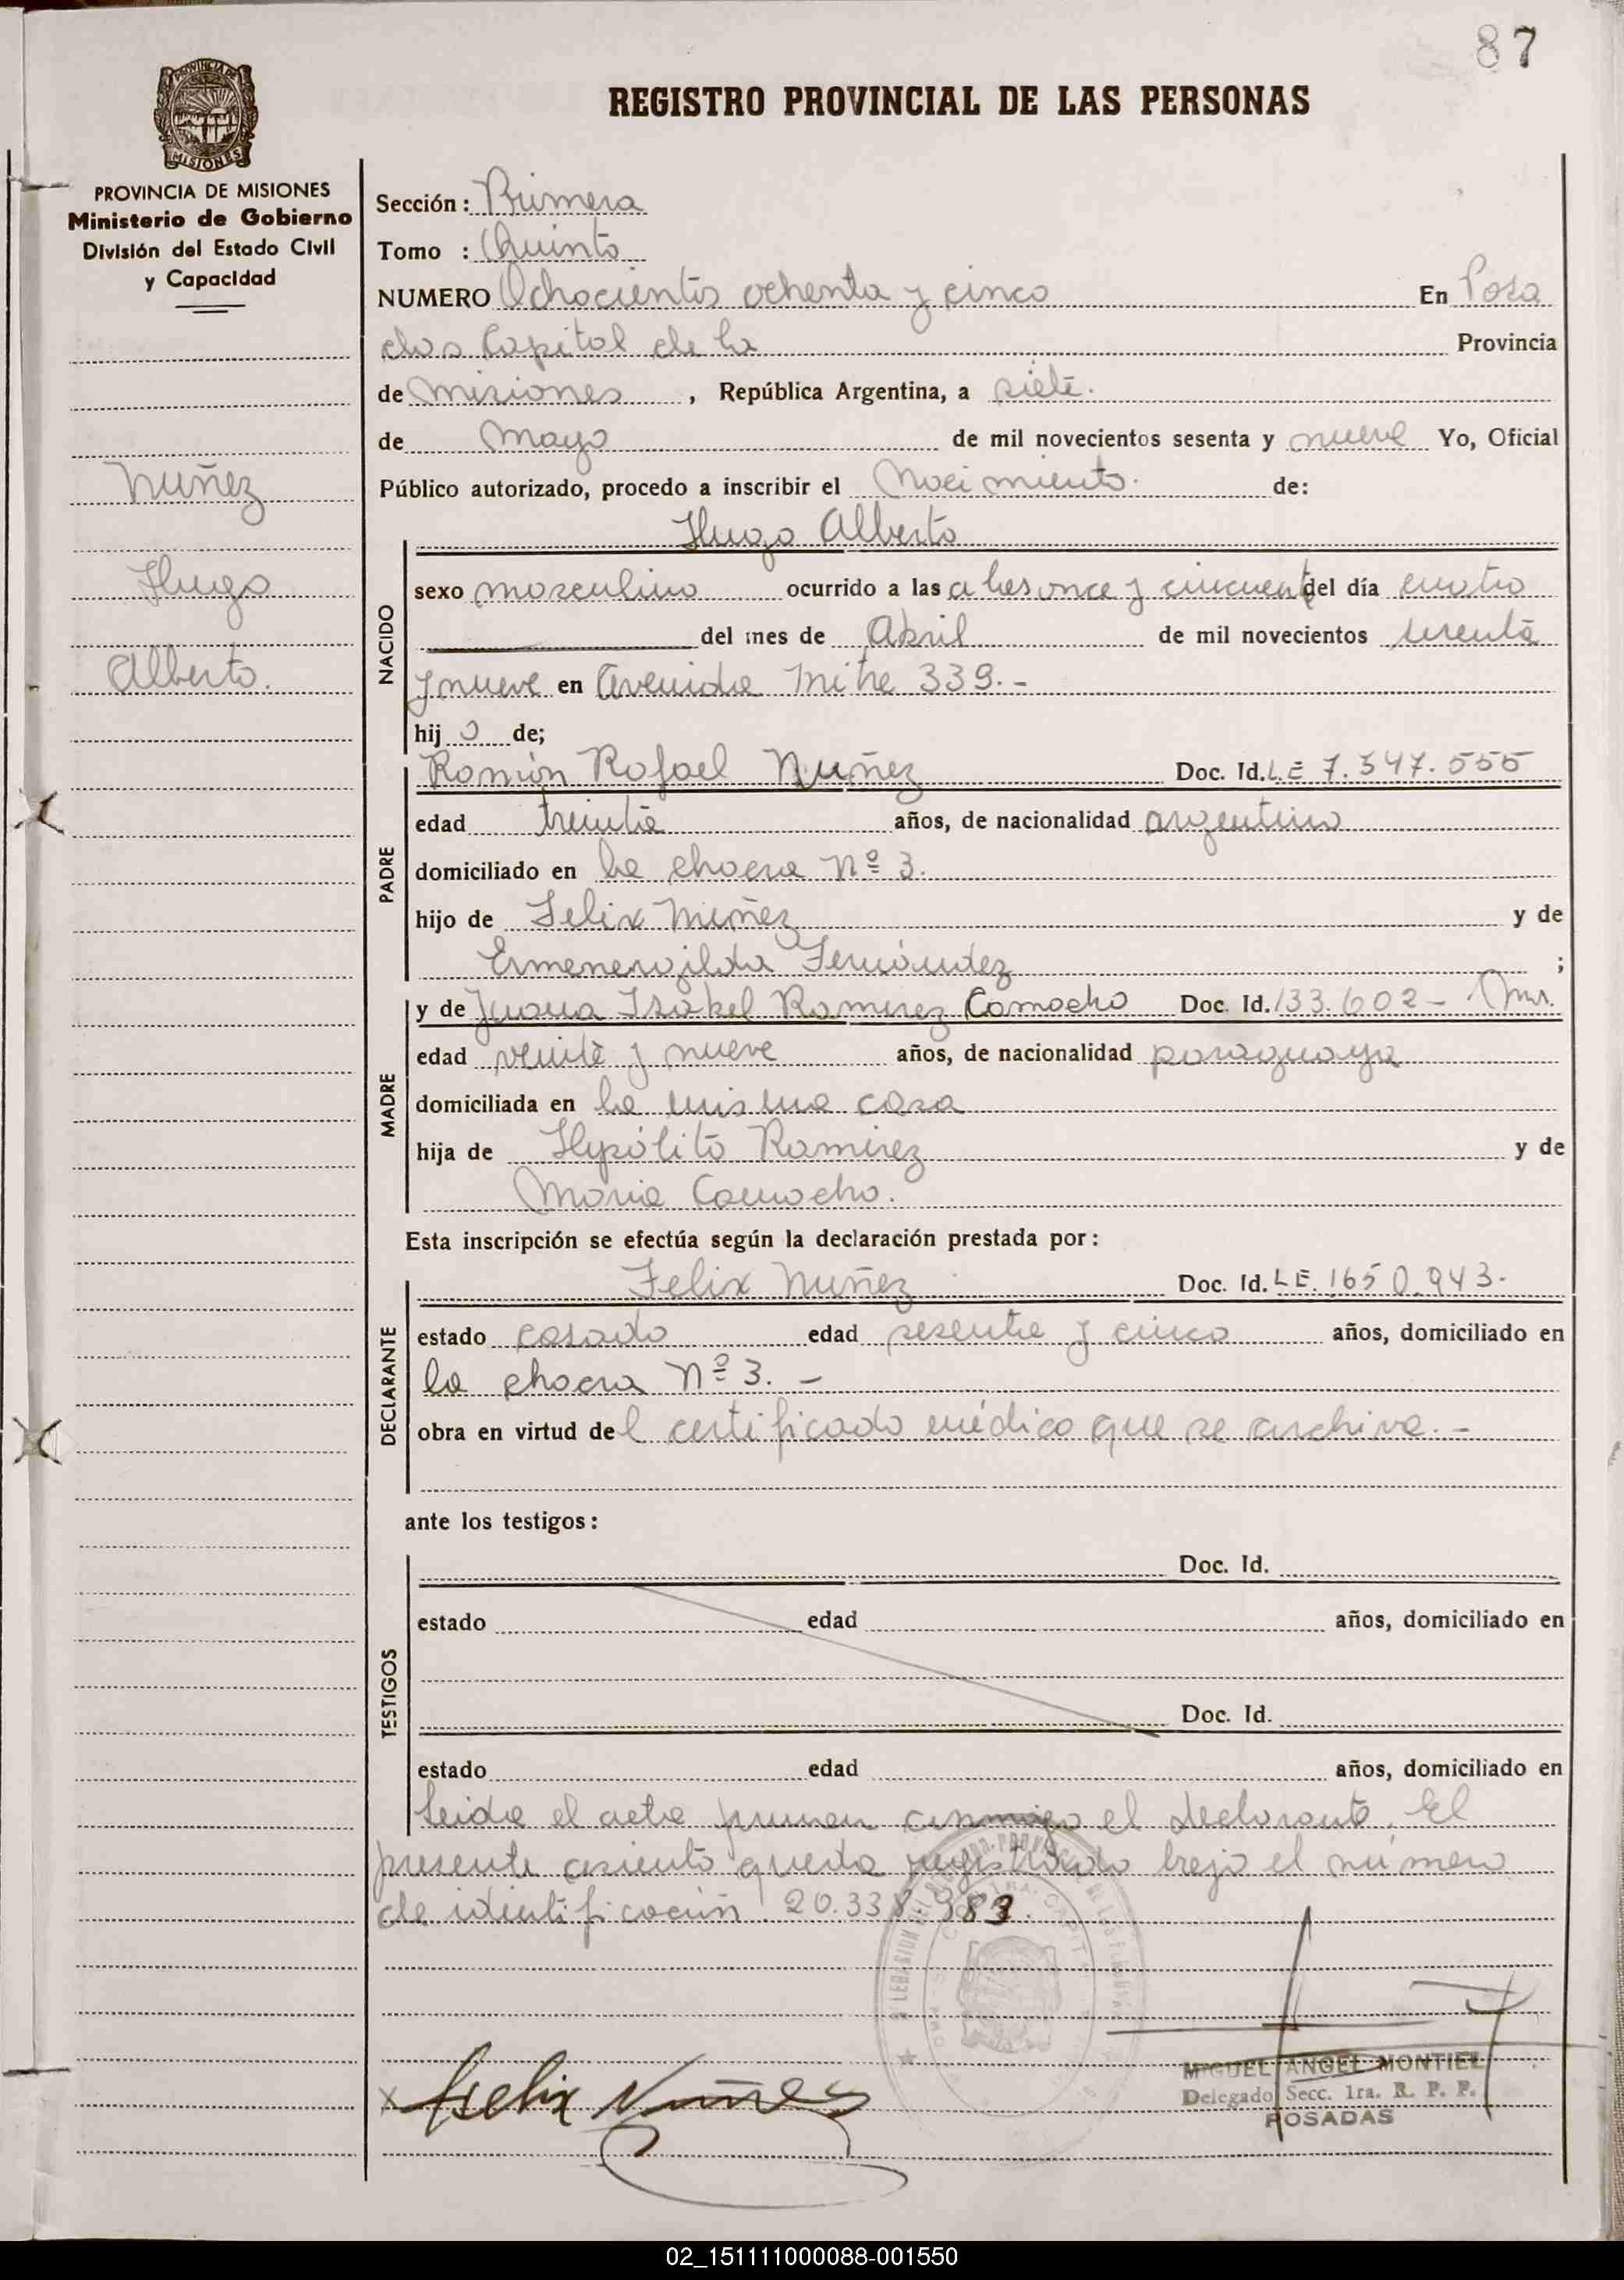 87
REGISTRO PROVINCIAL DE LAS PERSONAS
PROVINCIA DE
MISIONES
PROVINCIA DE MISIONES
Ministerio de Gobierno
División del Estado Civil
y Capacidad
Nuñez
Hugo
Alberto.
Sección: Primera
Tomo : Quinto
NUMERO Ochocientos ochenta y cinco En Posa
das Capital de la Provincia
de Misiones, República Argentina, a siete.
de Mayo de mil novecientos sesenta y nueve Yo, Oficial
Público autorizado, procedo a inscribir el Nacimiento. de:
Hugo Alberto
NACIDO
sexo masculino ocurrido a las a las once y cincuent del día cuatro
del mes de Abril de mil novecientos sesenta
y nueve en Avenida Mitre 339.-
hijo de;
PADRE
Ramón Rafael Nuñez Doc. Id. L.E 7.547.555
edad treinta años, de nacionalidad argentino
domiciliado en la chacra Nº 3.
hijo de Felix Nuñez y de
Ermenergilda Fernández ;
MADRE
y de Juana Isabel Ramirez Camacho Doc. Id. 133.602-
edad veinte y nueve años, de nacionalidad paraguaya
domiciliada en la misma casa
hija de Hypólito Ramirez y de
Maria Camacho.
Esta inscripción se efectúa según la declaración prestada por:
DECLARANTE
Felix Nuñez Doc. Id. L.E. 1650.943.
estado casado edad sesenta y cinco años, domiciliado en
la chacra Nº 3. -
obra en virtud del certificado médico que se archiva.-
ante los testigos:
TESTIGOS
Doc. Id.
estado edad años, domiciliado en
Doc. Id.
estado edad años, domiciliado en
Leida el acta firman conmigo el declarante. El
presente asiento queda registrado bajo el número
de identificación 20.338.983.
x Felix Nuñes
MIGUEL ANGEL MONTIEL
Delegado Secc. 1ra. R. P. P.
POSADAS
02_151111000088-001550